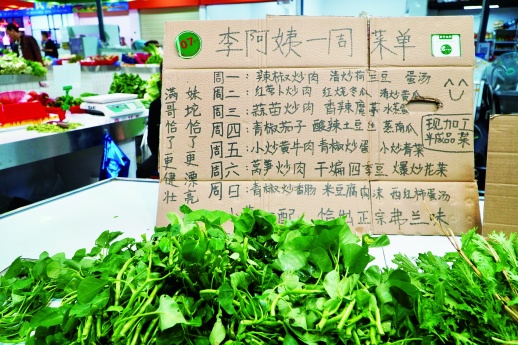 07
李阿姨一周 菜单
周一：辣椒炒肉 清炒荷兰豆 蛋汤
周二：红萝卜炒肉 红烧冬瓜 清炒黄瓜
周三：蒜苗炒肉 香辣魔芋 水蒸蛋
周四：青椒茄子 酸辣土豆丝 蒸南瓜
周五：小炒黄牛肉 青椒炒蛋 小炒青菜
周六：莴笋炒肉 干煸四季豆 爆炒花菜
周日：青椒炒香肠 米豆腐肉沫 西红柿蛋汤
配 恰 正宗 弗兰 味
满哥恰了更健壮
妹坨恰了更漂亮
现加工
半成品菜